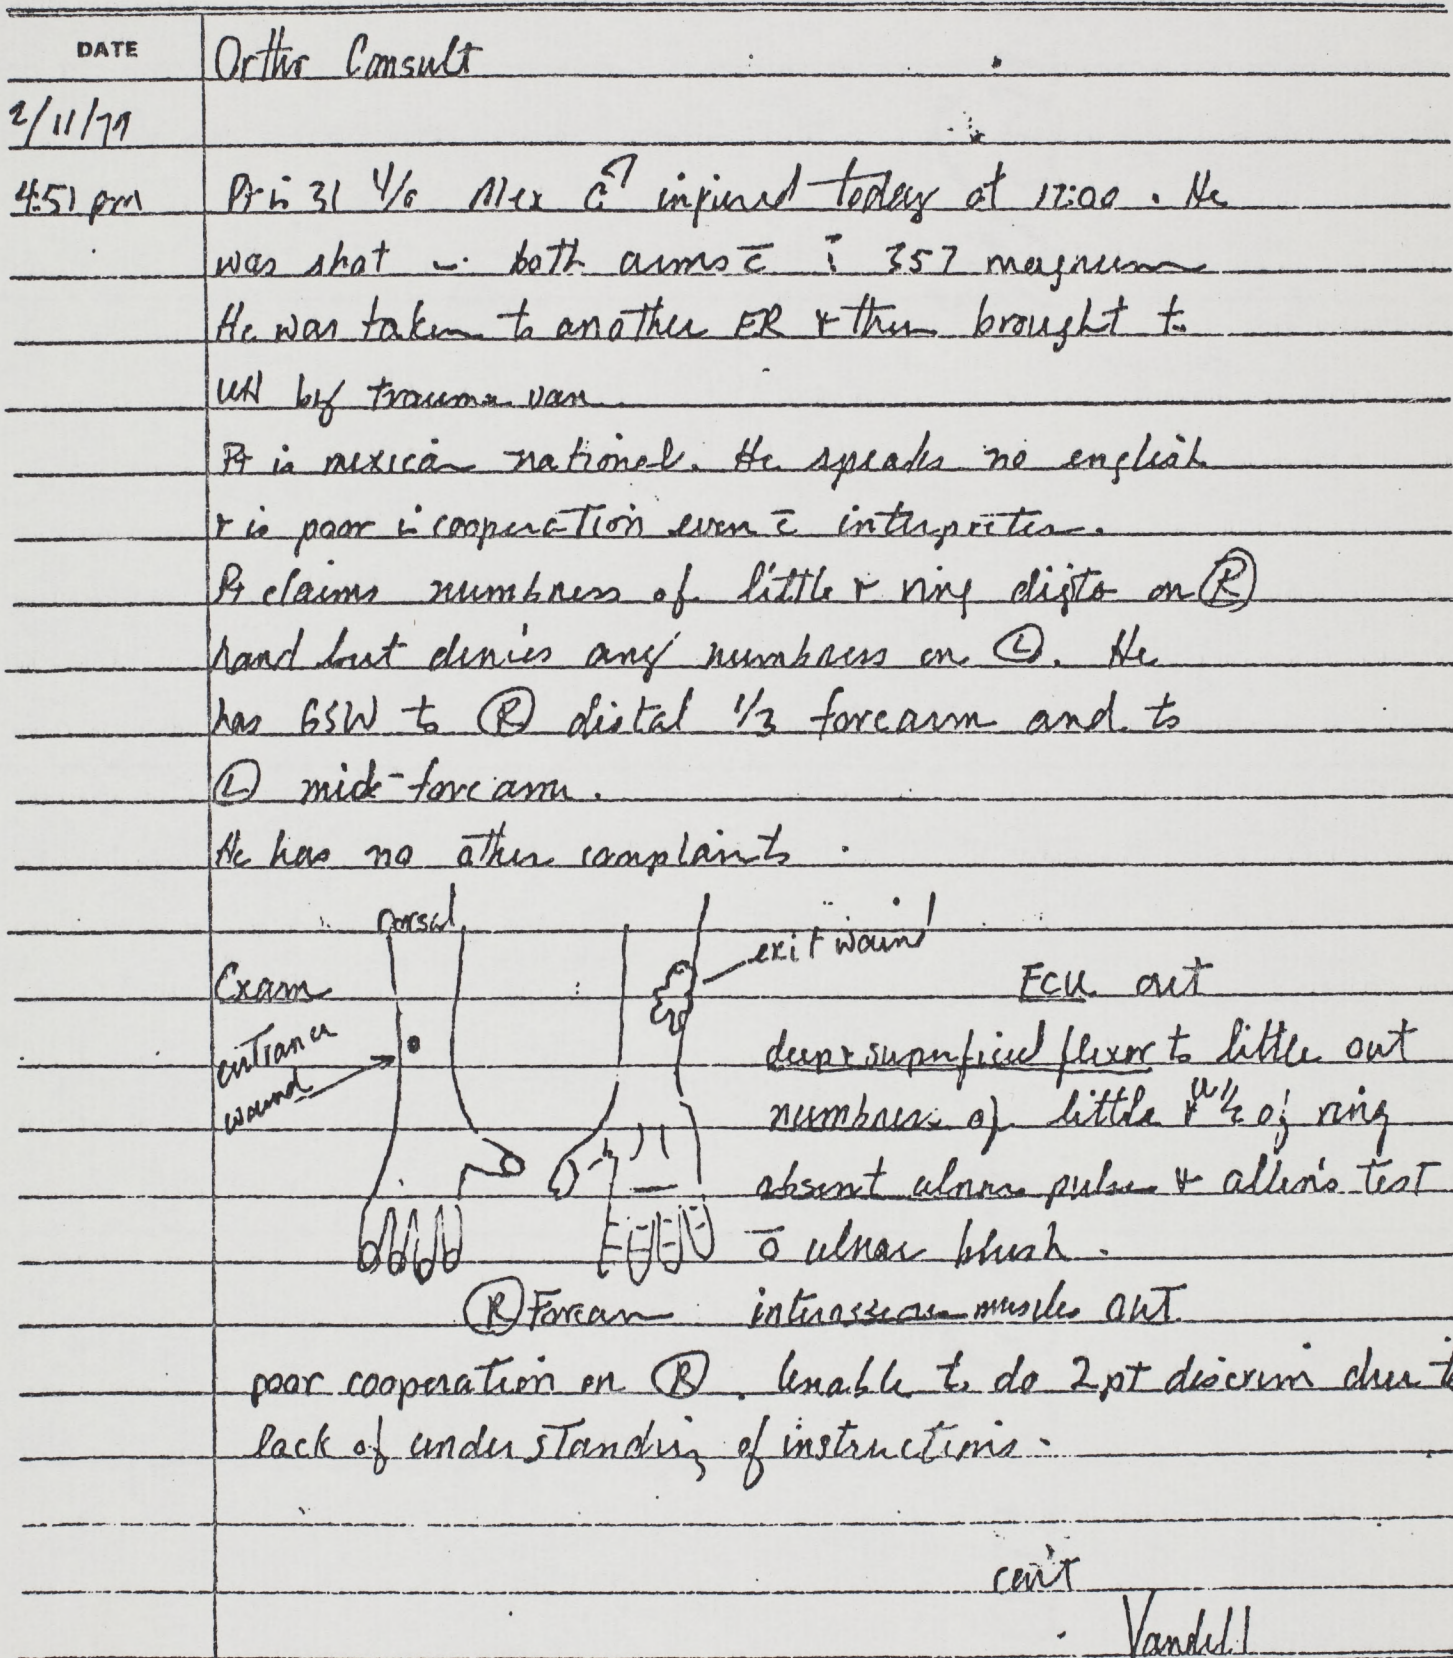 DATE
Ortho Consult
2/11/79
4:51 pm
Pt is 31 y/o Mex ♂ injured today at 12:00. He
was shot in both arms c̄ i 357 magnum
He was taken to another ER & then brought to
UH by trauma van
Pt is mexican national. He speaks no english
& is poor in cooperation even c̄ interpreter.
Pt claims numbness of little & ring digits on Ⓡ
hand but denies any numbness on Ⓛ. He
has GSW to Ⓡ distal 1/3 forearm and to
Ⓛ mid-forearm.
He has no other complaints.
dorsal
exit wound
Exam
ECU out
entrance
wound
deep & superficial flexor to little out
numbness of little & u 1/2 of ring
absent ulnar pulse & allen's test
ō ulnar blush.
Ⓡ Forearm
interosseous muscles out.
poor cooperation on Ⓡ. Unable to do 2 pt discrim due to
lack of understanding of instructions.
con't